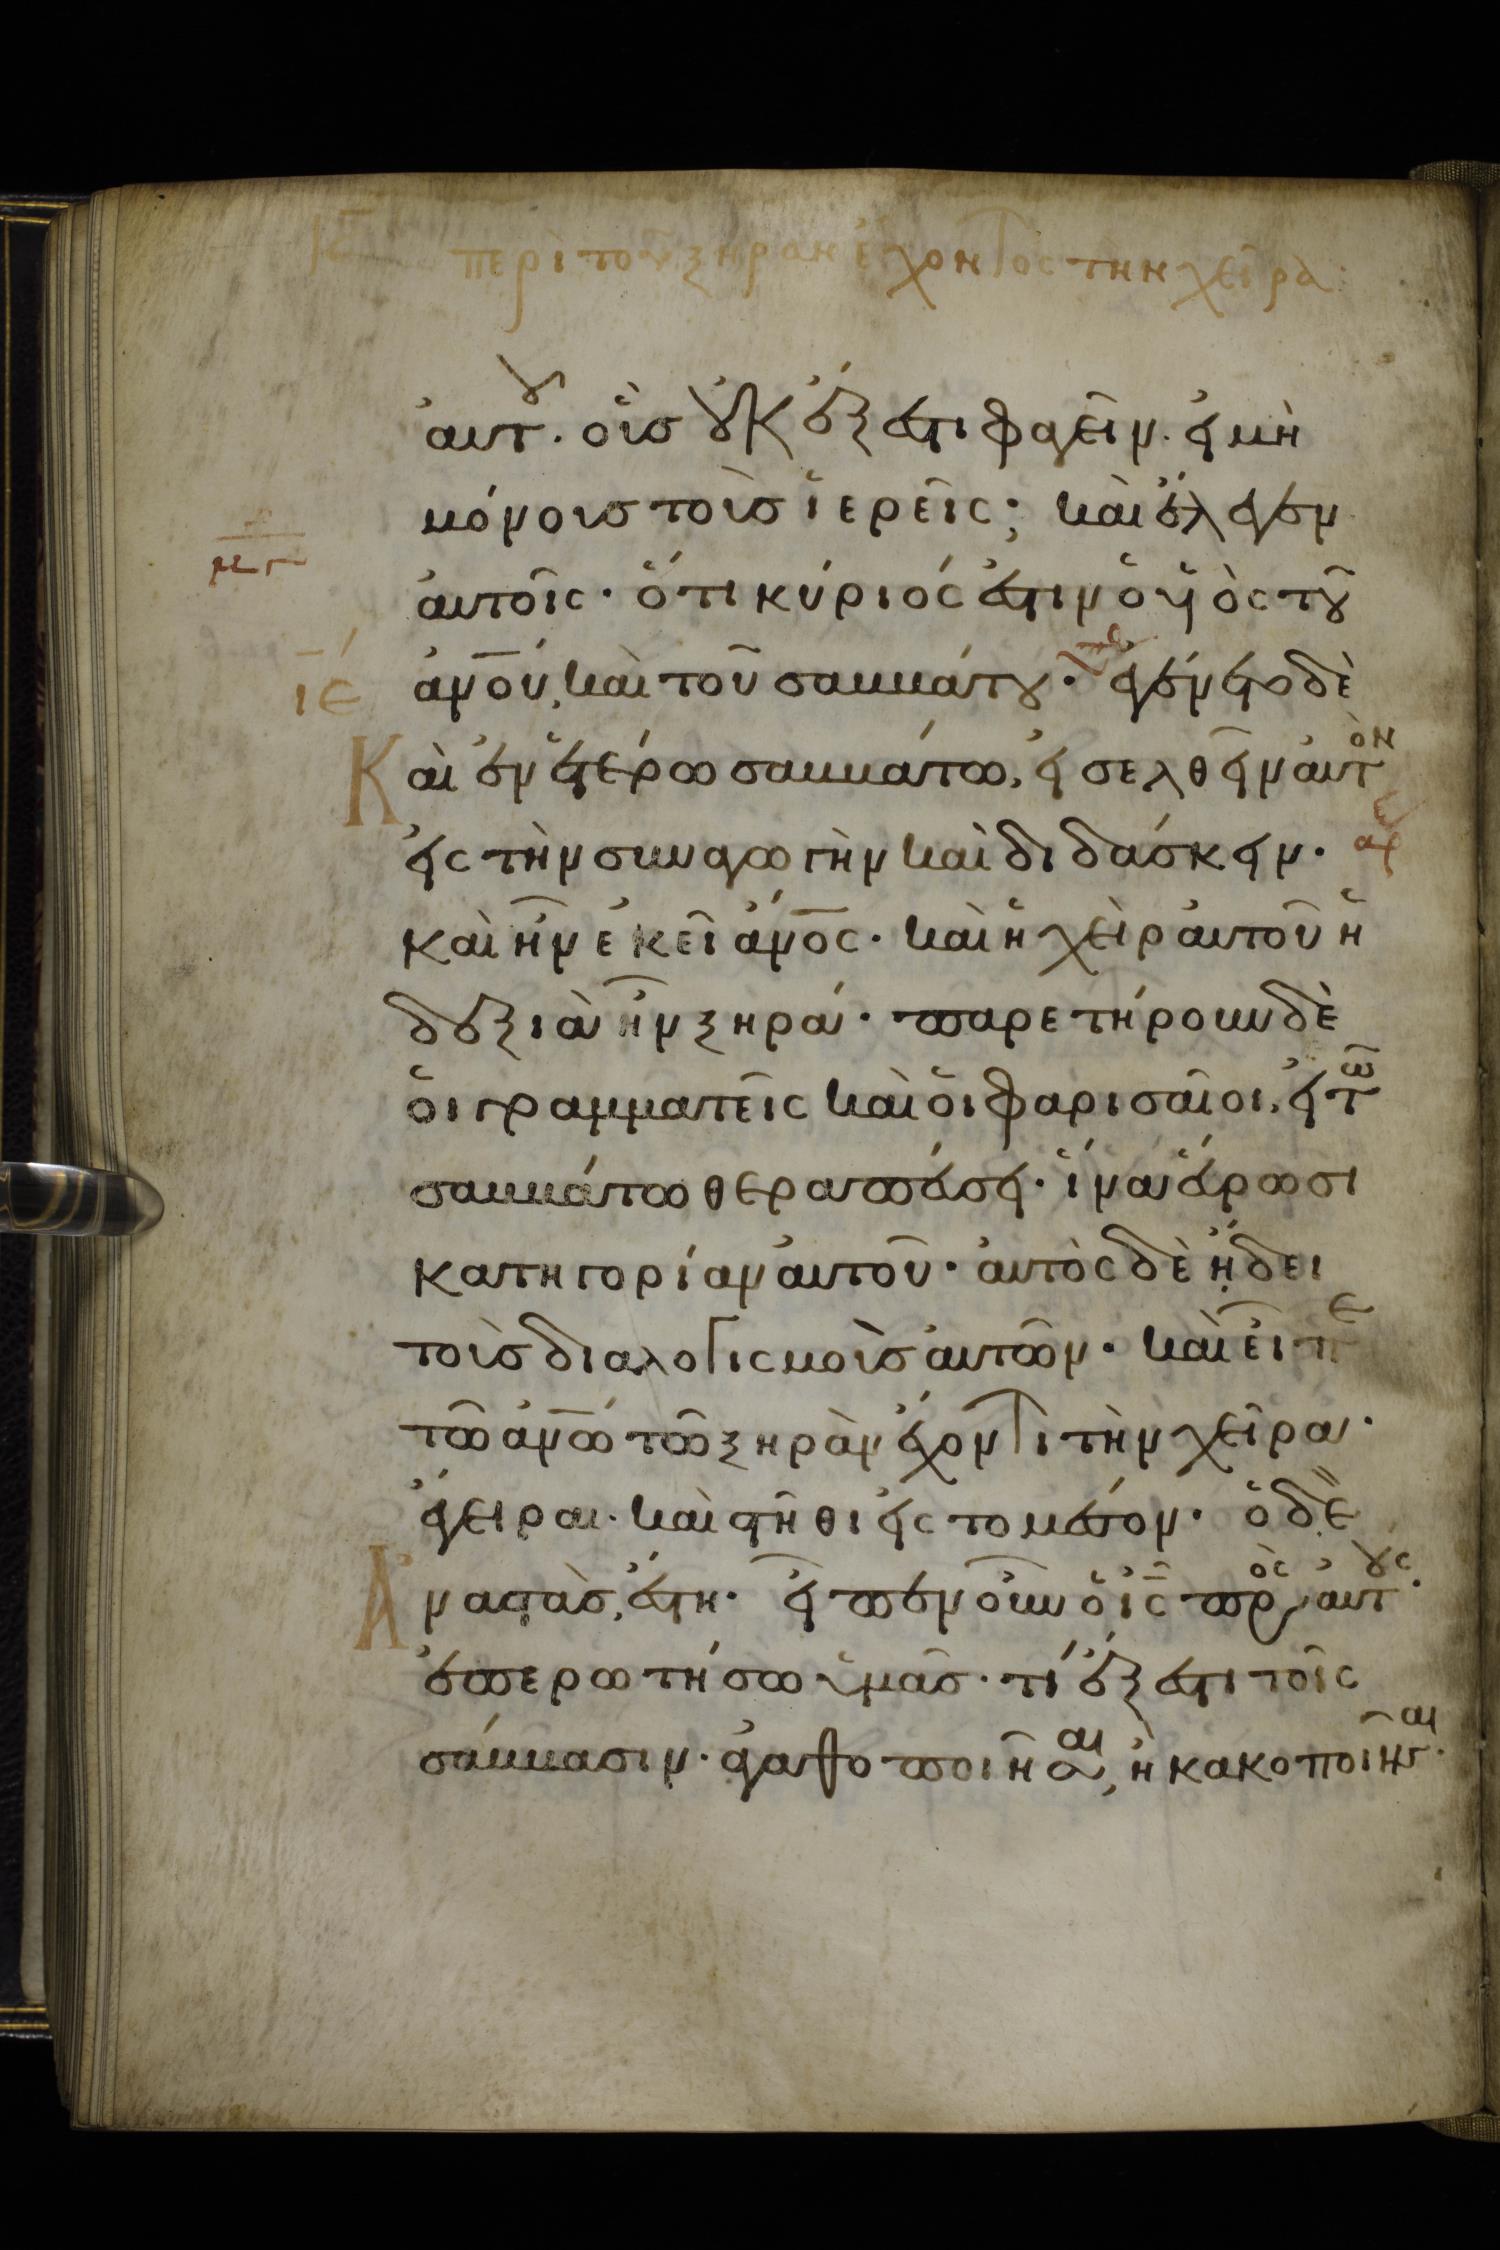 ιε περὶ τοῦ ξηρὰν ἔχοντος τὴν χεῖρα
ἀυτοῦ· οἷς οὐκ ἔξεστι φαγεῖν· εἰ μὴ
μόνοις τοῖς ἱερεῖς; καὶ ἔλεγεν
ἀυτοῖς· ὅτι κύριός ἐστιν ὁ υἱὸς τοῦ
ἀν̅ο̅υ, καὶ τοῦ σαββάτου· ἐγένετο δὲ
ιε
Καὶ ἐν ἑτέρω σαββάτω, εἰσελθεῖν ἀυτὸν
εἰς τὴν συναγωγὴν καὶ διδάσκειν· αρ
καὶ ἦν ἐκεῖ ἄν̅ο̅ς· καὶ ἡ χεὶρ ἀυτοῦ ἡ
δεξιὰ ἦν ξηρά· παρετήρουν δὲ
ὁι γραμματεῖς καὶ ὁι φαρισαῖοι, εἰ τῶ
σαββάτω θεραπεύσει· ἵνα εὕρωσι
κατηγορίαν ἀυτοῦ· ἀυτὸς δὲ ἤδει
τοὺς διαλογισμοὺς ἀυτῶν· καὶ εἶπε
τῶ ἀν̅ω̅ τῶ ξηρὰν ἔχοντι τὴν χεῖρα·
ἔγειραι· καὶ στῆθι εἰς το μέσον· ὁ δὲ
Ἀναστὰς, ἔστη· εἶπεν οὖν ὁ ι̅ς̅ πρὸς ἀυτούς·
ἐπερωτήσω ὑμᾶς· τί ἔξεστι τοῖς
σάββασιν· ἀγαθοποιῆσαι, ἢ κακοποιῆσαι·